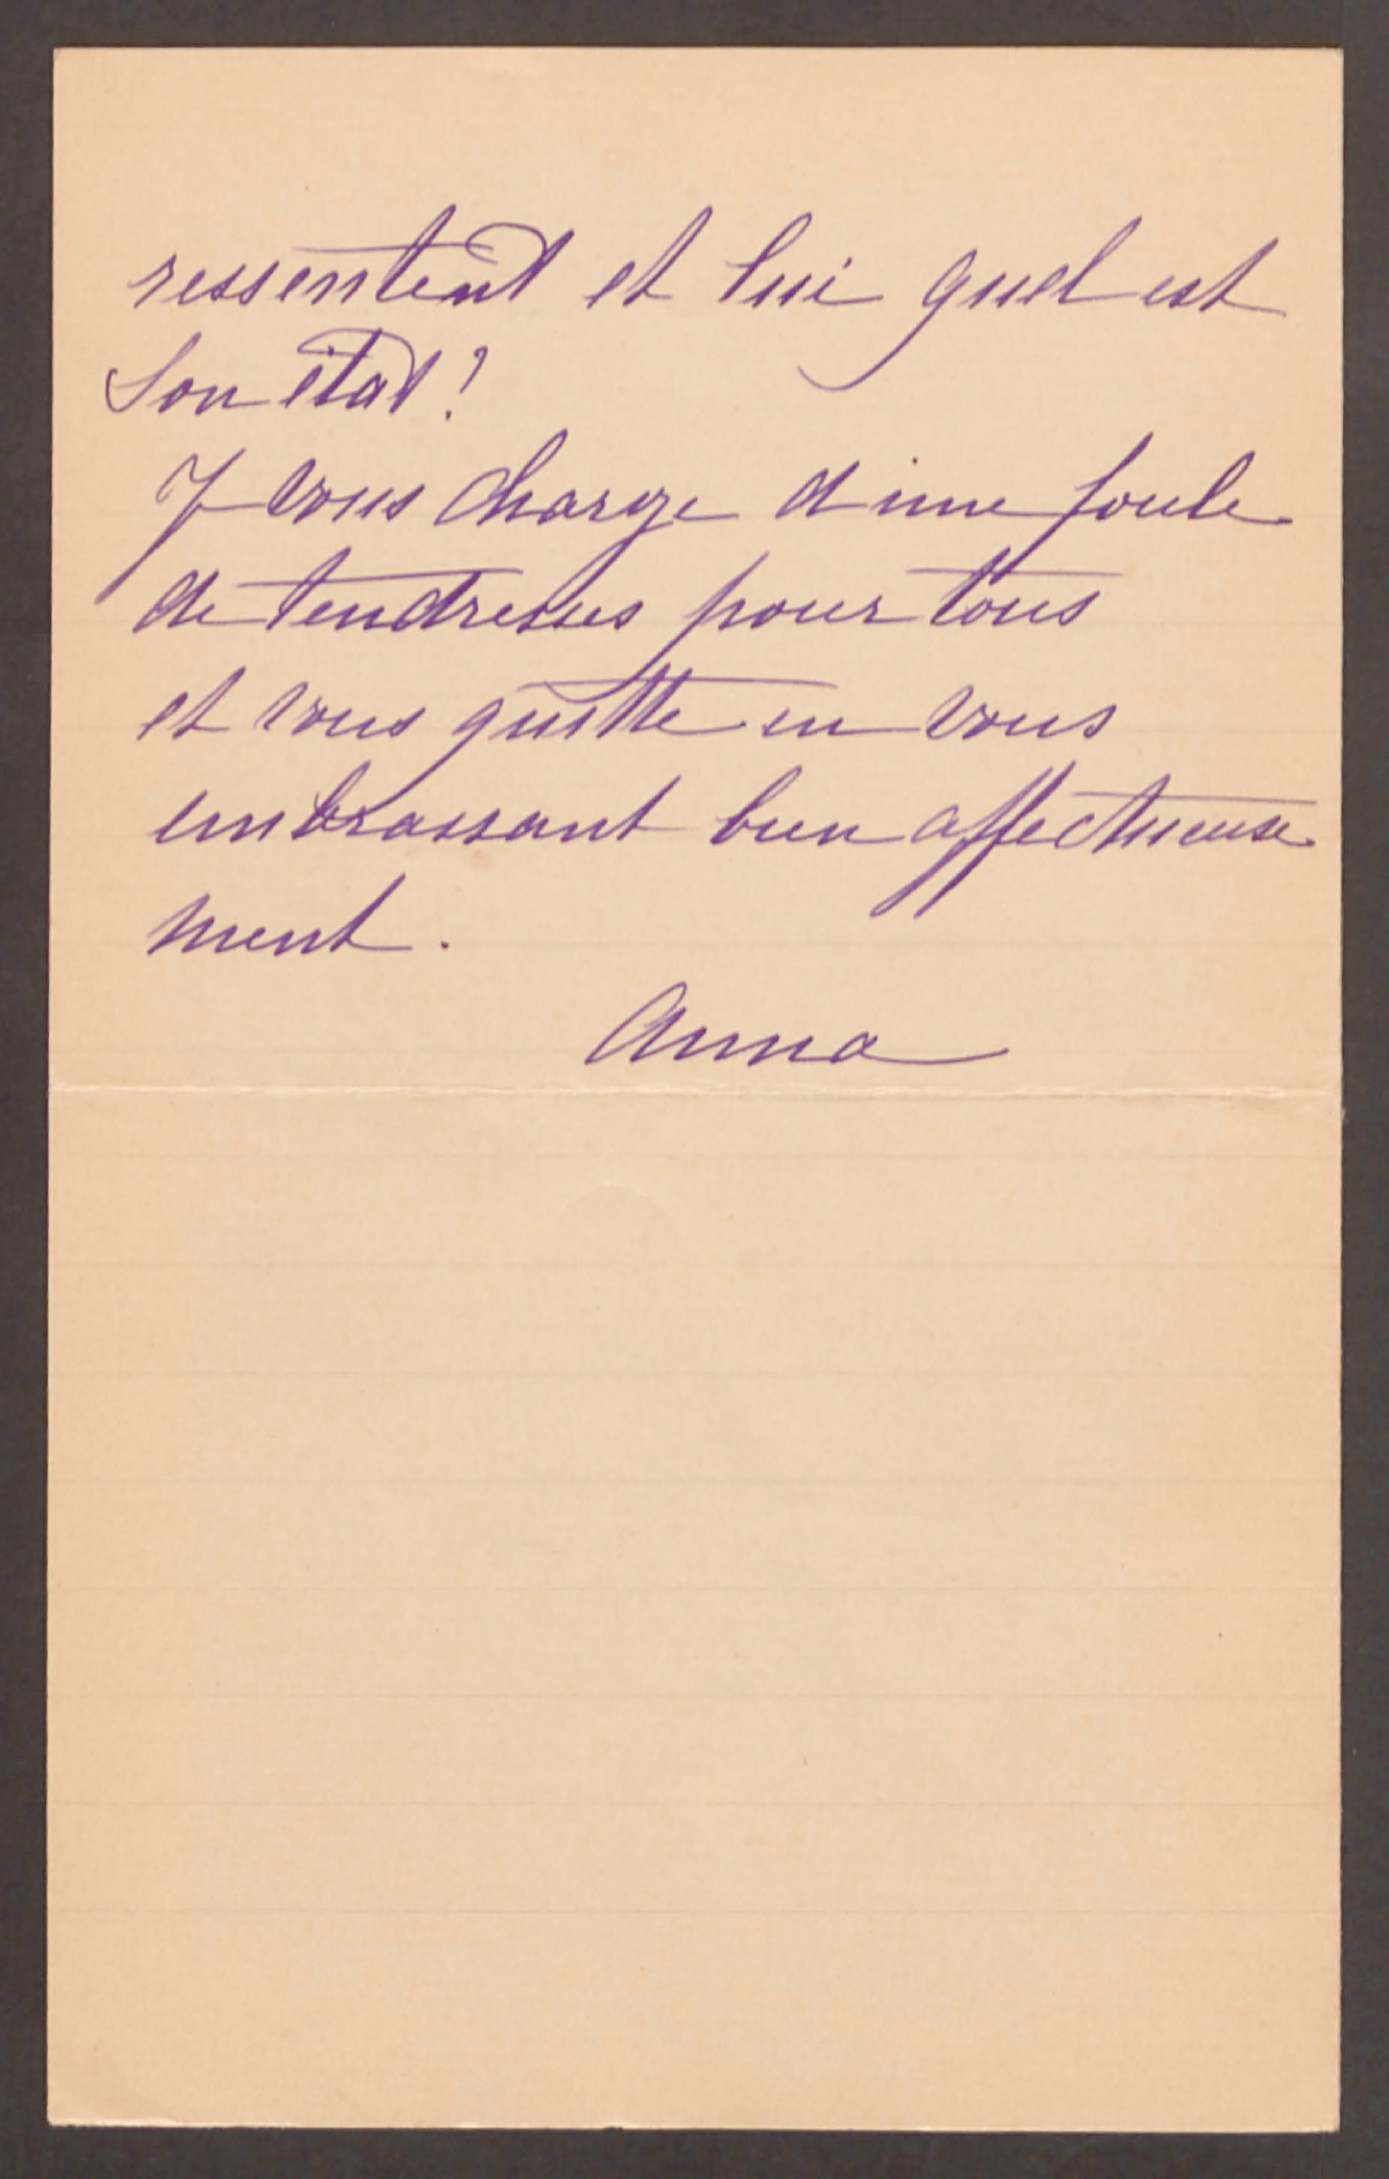 ressentent et lui quel est
son état?
Je vous charge d'une foule
de tendresses pour tous
et vous quitte en vous
embrassant bien affectueuse
ment.
Anna